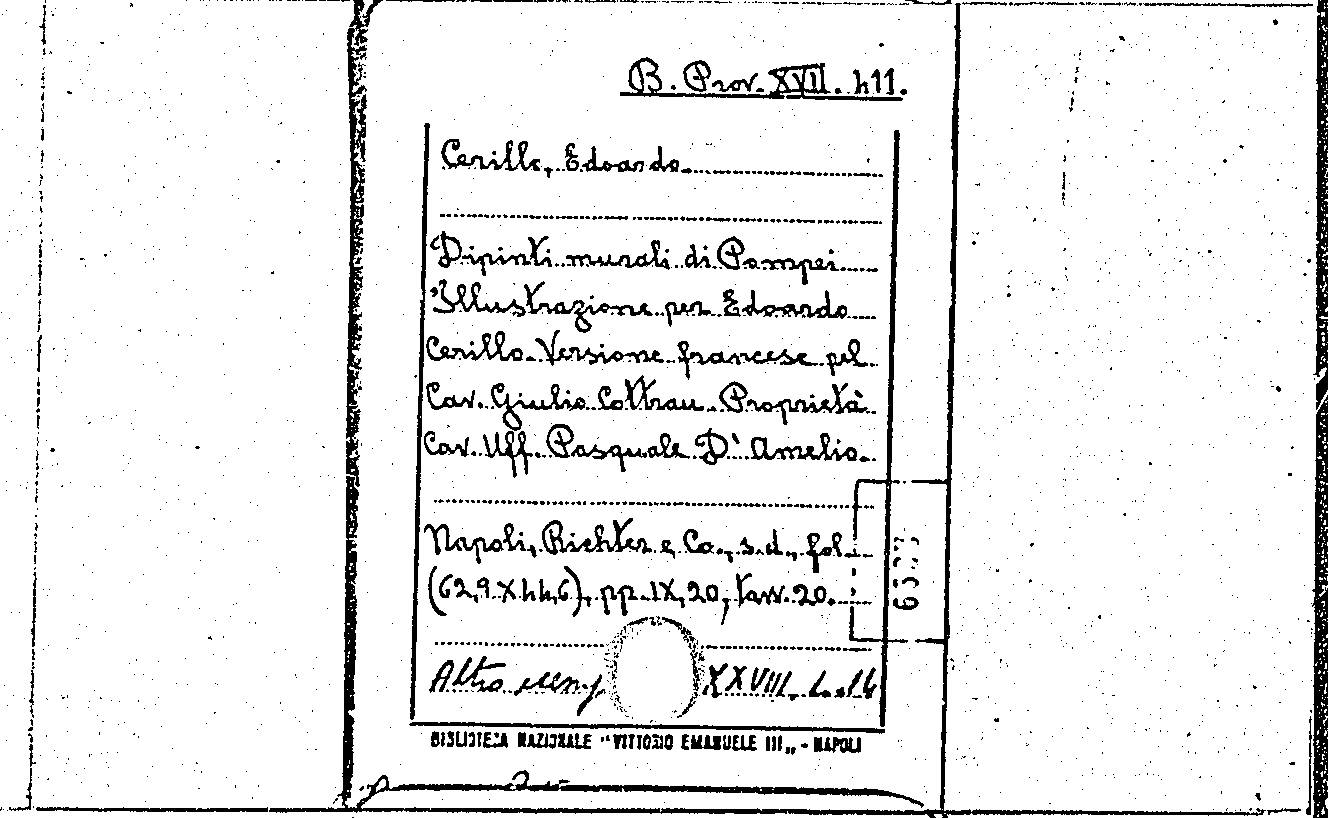 B. Prov. XVII. 411.
Cerillo, Edoardo.
Dipinti murali di Pompei
Illustrazione per Edoardo
Cerillo. Versione francese pel
Cav. Giulio Cottrau. Proprietà
Cav. Uff. Pasquale D'Amelio.
Napoli, Richter e Co., s.d., fol.
(62,9 X 44,6), pp. IX, 20, tavv. 20.
Altro XXVIII.
BIBLIOTECA NAZIONALE "VITTORIO EMANUELE III„ - NAPOLI